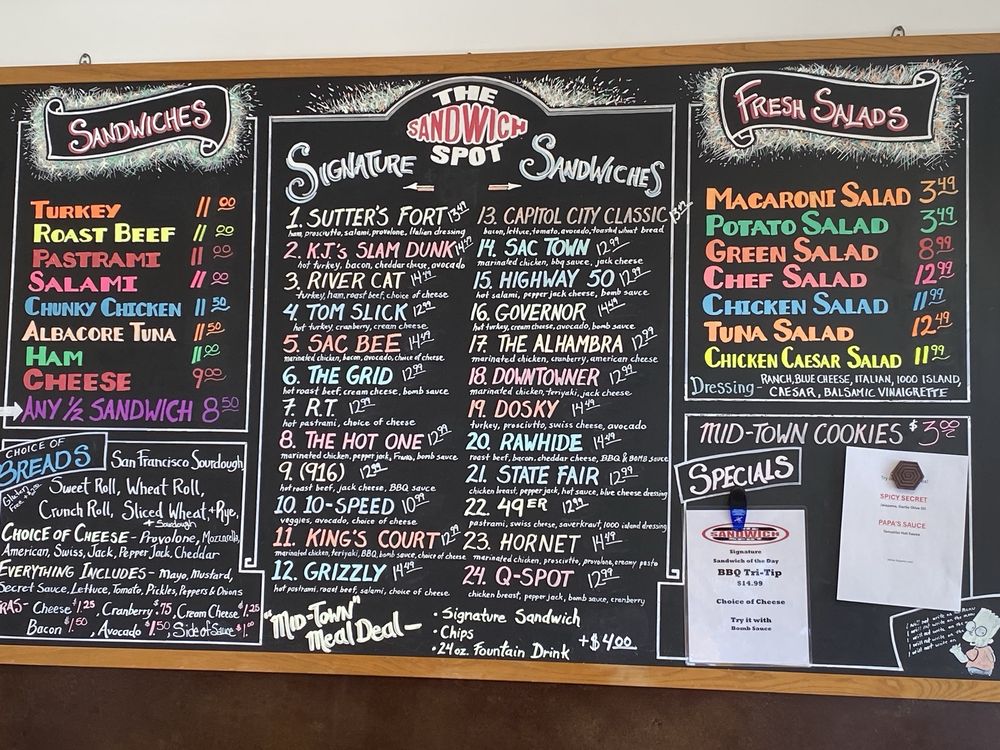 SANDWICHES
TURKEY 11 00
ROAST BEEF 11 00
PASTRAMI 11 00
SALAMI 11 00
CHUNKY CHICKEN 11 50
ALBACORE TUNA 11 50
HAM 11 00
CHEESE 9 00
ANY 1/2 SANDWICH 8 50
CHOICE OF
BREADS
San Francisco Sourdough,
Sweet Roll, Wheat Roll,
Crunch Roll, Sliced Wheat, + Rye,
+ Sourdough
Gluten
Free
CHOICE OF CHEESE - Provolone, Mozzarella,
American, Swiss, Jack, Pepper Jack, Cheddar
EVERYTHING INCLUDES - Mayo, Mustard,
Secret Sauce, Lettuce, Tomato, Pickles, Peppers & Onions
RAS - Cheese $1.25, Cranberry $.75, Cream Cheese $1.25
Bacon $1.50, Avocado $1.50, Side of Sauce $1.00
THE
SANDWICH
SPOT
SIGNATURE SANDWICHES
1. SUTTER'S FORT 13.49
ham, prosciutto, salami, provolone, Italian dressing
2. K.J.'s SLAM DUNK 14.49
hot turkey, bacon, cheddar cheese, avocado
3. RIVER CAT 14.49
turkey, ham, roast beef, choice of cheese
4. TOM SLICK 12.99
hot turkey, cranberry, cream cheese
5. SAC BEE 14.49
marinated chicken, bacon, avocado, choice of cheese
6. THE GRID 12.99
hot roast beef, cream cheese, bomb sauce
7. R.T. 12.99
hot pastrami, choice of cheese
8. THE HOT ONE 12.99
marinated chicken, pepper jack, Franks, bomb sauce
9. (916) 12.99
hot roast beef, jack cheese, BBQ sauce
10. 10-SPEED 10.99
veggies, avocado, choice of cheese
11. KING'S COURT 12.99
marinated chicken, teriyaki, BBQ, bomb sauce, choice of cheese
12. GRIZZLY 14.49
hot pastrami, roast beef, salami, choice of cheese
13. CAPITOL CITY CLASSIC 13.99
bacon, lettuce, tomato, avocado, toasted wheat bread
14. SAC TOWN 12.99
marinated chicken, bbq sauce, jack cheese
15. HIGHWAY 50 12.99
hot salami, pepper jack cheese, bomb sauce
16. GOVERNOR 14.49
hot turkey, cream cheese, avocado, bomb sauce
17. THE ALHAMBRA 12.99
marinated chicken, cranberry, american cheese
18. DOWNTOWNER 12.99
marinated chicken, teriyaki, jack cheese
19. DOSKY 14.49
turkey, prosciutto, swiss cheese, avocado
20. RAWHIDE 14.49
roast beef, bacon, cheddar cheese, BBQ & BOMB sauce
21. STATE FAIR 12.99
chicken breast, pepper jack, hot sauce, blue cheese dressing
22. 49ER 12.99
pastrami, swiss cheese, sauerkraut, 1000 island dressing
23. HORNET 14.49
marinated chicken, prosciutto, provolone, creamy pesto
24. Q-SPOT 12.99
chicken breast, pepper jack, bomb sauce, cranberry
"MID-TOWN"
MEAL DEAL -
• Signature Sandwich
• Chips
• 24oz. Fountain Drink
+$4.00
FRESH SALADS
MACARONI SALAD 3 49
POTATO SALAD 3 49
GREEN SALAD 8 99
CHEF SALAD 12 99
CHICKEN SALAD 11 99
TUNA SALAD 12 49
CHICKEN CAESAR SALAD 11 99
Dressing - RANCH, BLUE CHEESE, ITALIAN, 1000 ISLAND,
CAESAR, BALSAMIC VINAIGRETTE
MID-TOWN COOKIES $3.00
SPECIALS
SANDWICH
Signature
Sandwich of the Day
BBQ Tri-Tip
$14.99
Choice of Cheese
Try it with
Bomb Sauce
SPICY SECRET
PAPA'S SAUCE
I will not write on the